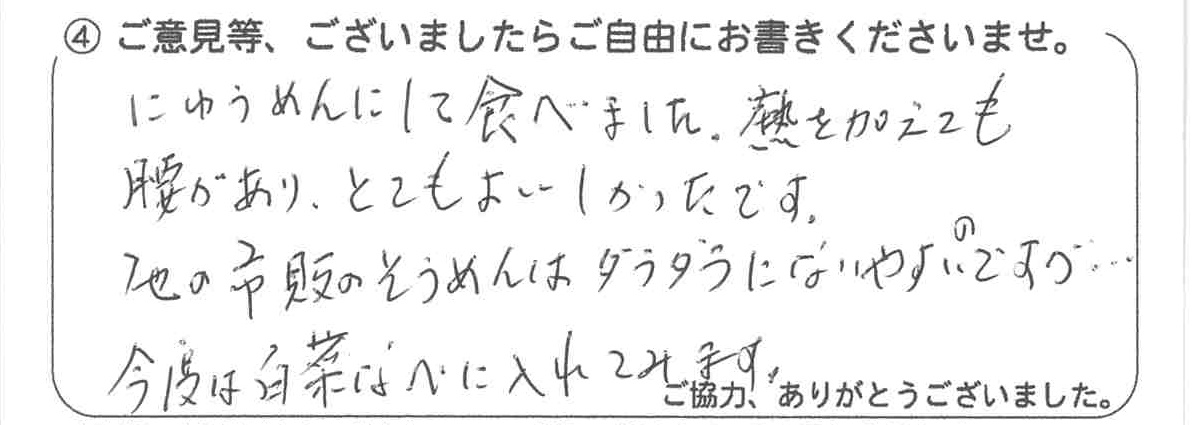 ④ ご意見等、ございましたらご自由にお書きくださいませ。
にゅうめんにして食べました。熱を加えても
腰があり、とてもおいしかったです。
他の市販のそうめんはダラダラになりやすいのですが…
今度は白菜なべに入れてみます。
ご協力、ありがとうございました。